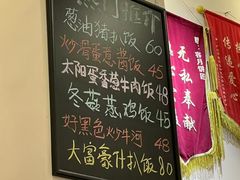 葱油猪扒饭 60
炒滑蛋葱酱饭 45
太阳蛋香葱牛肉饭 48
冬菇蒸鸡饭 45
好黑色炒牛河 48
大富豪什扒饭 80
无私奉献
传递爱心